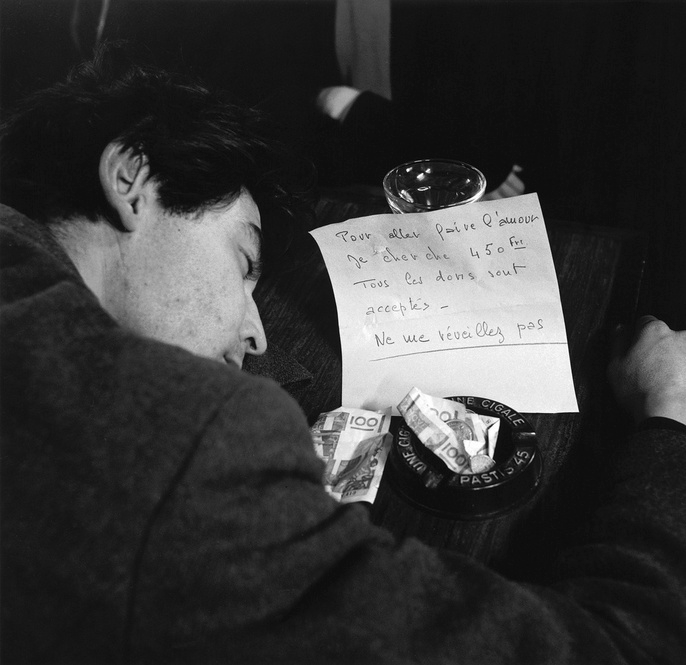 Pour aller faire l'amour
Je cherche 450 Frs
Tous les dons sont
acceptés –
Ne me réveillez pas
100
100
UNE CIGALE
UNE CIG
PASTIS 45